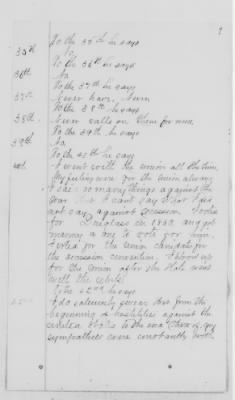 7
To the 35th he says
35th No.
To the 36th he says
36th No
To the 37th he says
37th Never have. Never
To the 38th he says
38th Never calls on them for me.
To the 39th he says
39th No
To the 40th he says
40th I went with the Union all the time.
My feelings were for the Union always
I said so many things against the
war that I can't say what I did
not say against secession. Voted
for Douglass in 1860 and got
many a one to vote for him.
I voted for the Union candidate for
the secession convention. I stood up
for the Union after the State went
with the rebels
To the 42nd he says
I do solemnly swear that from the
beginning of hostilities against the
United States to the end thereof my
sympathies were constantly with